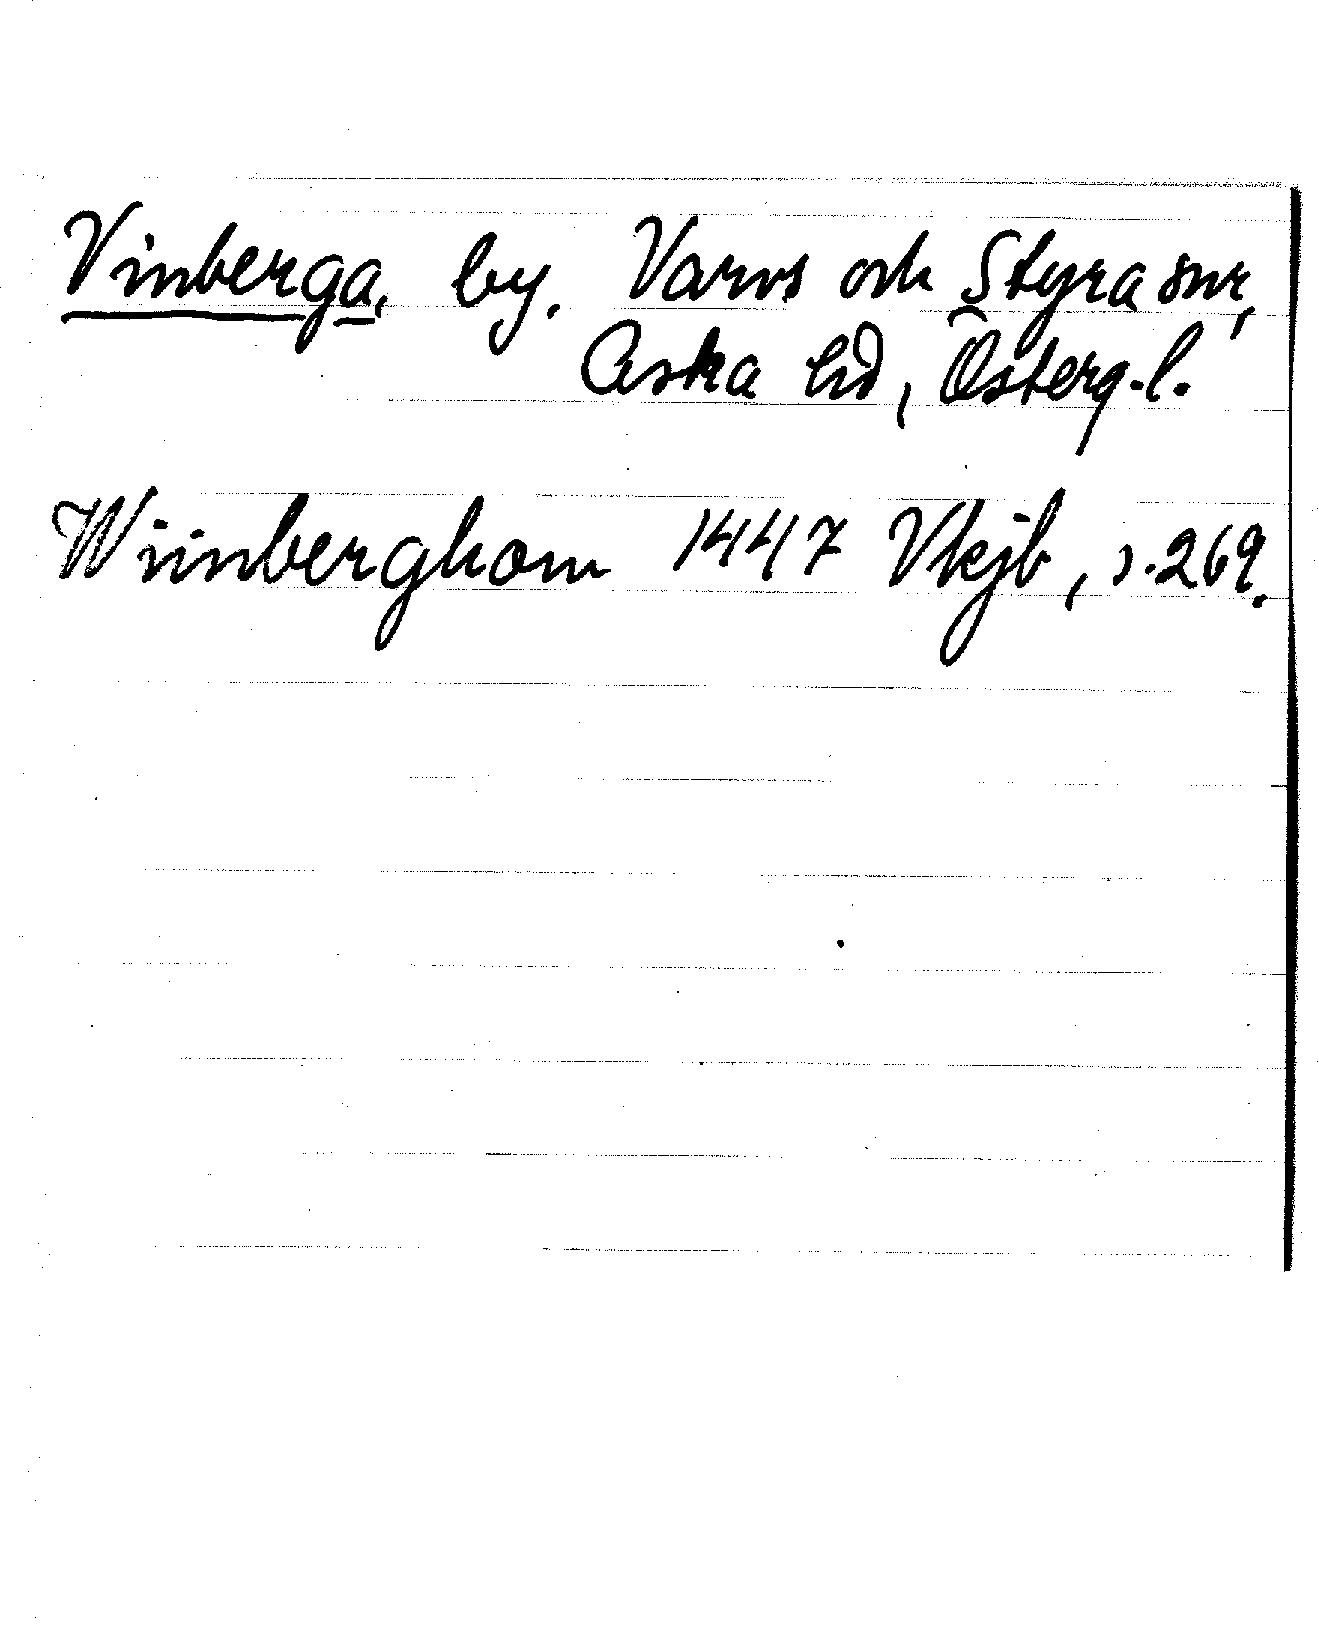 Vinberga, by. Varvs och Styra snr,
Aska hd, Österg.l.
Wiinberghom 1447 Vkjb, s.269.